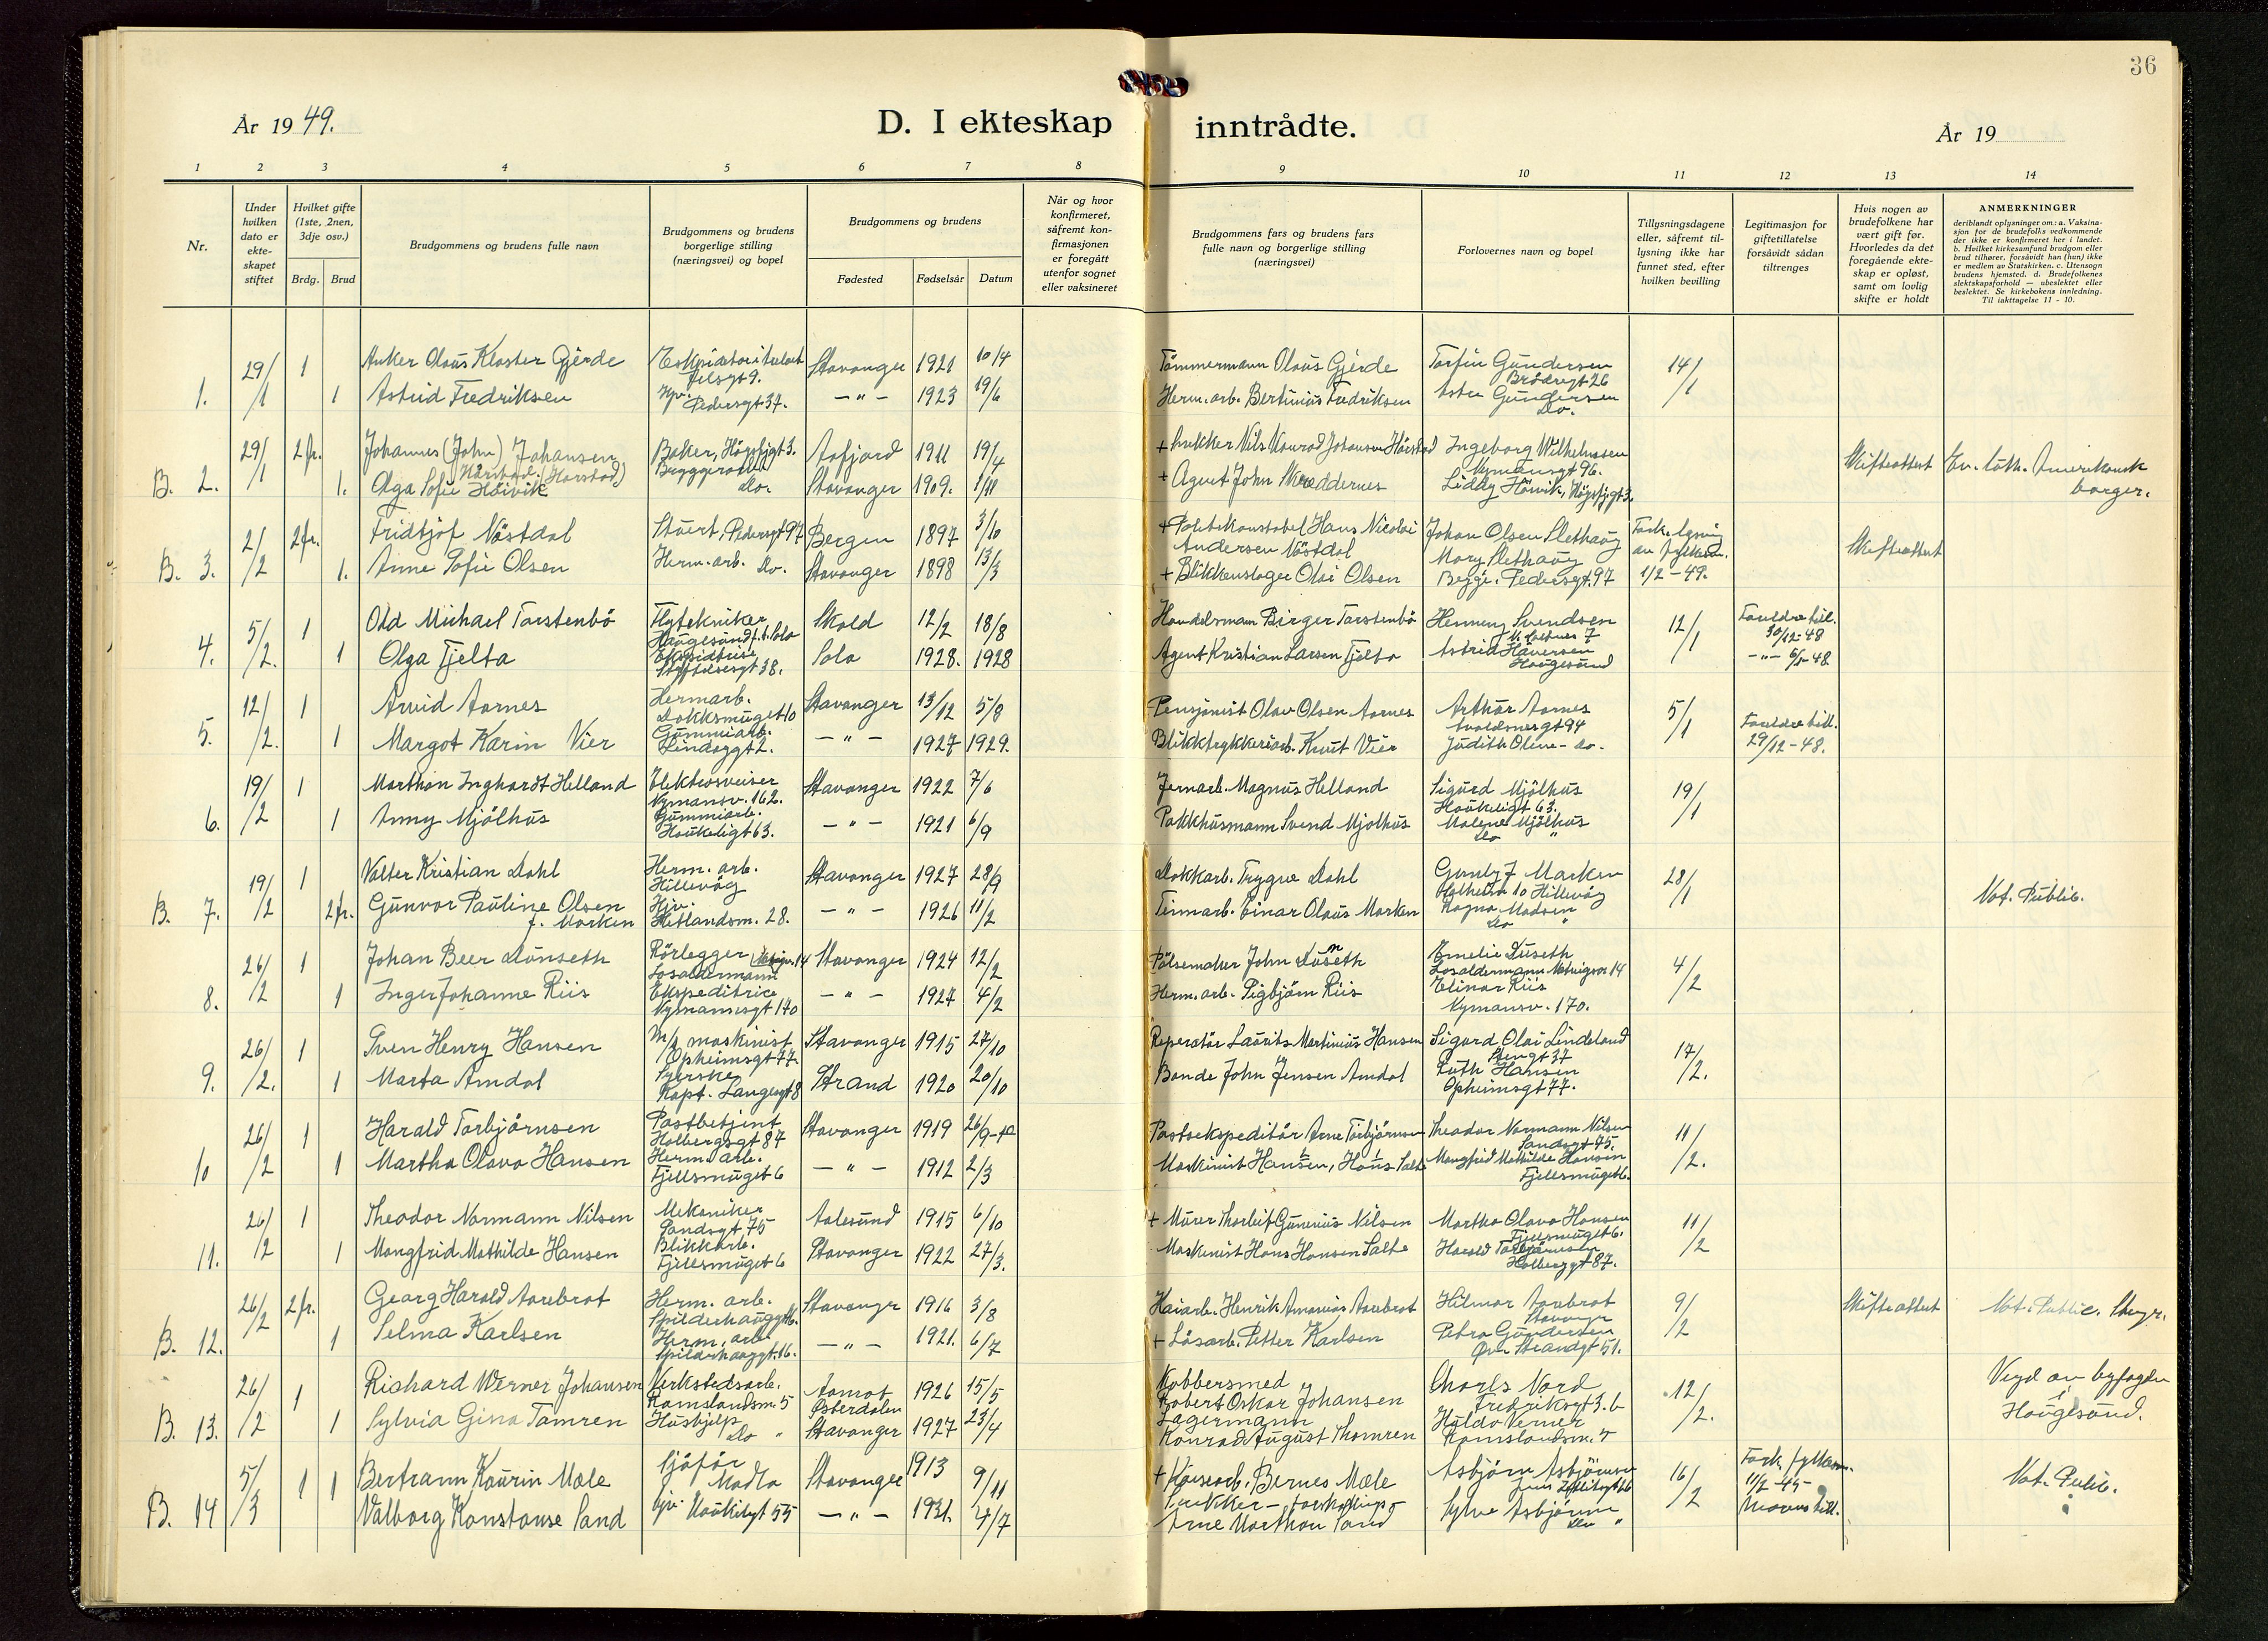 36
År 1949.
D. I ekteskap inntrådte.
År 19
1 2 3 4 5 6 7 8 9 10 11 12 13 14
Nr.
Under hvilken dato er ekteskapet stiftet
Hvilket gifte (1ste, 2nen, 3dje osv.)
Brdg. Brud
Brudgommens og brudens fulle navn
Brudgommens og brudens borgerlige stilling (næringsvei) og bopel
Brudgommens og brudens
Fødested Fødselsår Datum
Når og hvor konfirmeret, såfremt konfirmasjonen er foregått utenfor sognet eller vaksineret
Brudgommens fars og brudens fars fulle navn og borgerlige stilling (næringsvei)
Forlovernes navn og bopel
Tillysningsdagene eller, såfremt tillysning ikke har funnet sted, efter hvilken bevilling
Legitimasjon for giftetillatelse forsåvidt sådan tiltrenges
Hvis nogen av brudefolkene har vært gift før. Hvorledes da det foregående ekteskap er opløst, samt om lovlig skifte er holdt
ANMERKNINGER
deriblandt oplysninger om: a. Vaksinasjon for de brudefolks vedkommende der ikke er konfirmeret her i landet. b. Hvilket kirkesamfund brudgom eller brud tilhører, forsåvidt han (hun) ikke er medlem av Statskirken. c. Utensogn brudens hjemsted. d. Brudefolkenes slektskapsforhold — ubeslektet eller beslektet. Se kirkebokens innledning. Til iakttagelse 11 - 10.
29/1 1 Anker Olaus Kloster Gjerde Stavanger 1921 10/4 Tömmermann Olaus Gjerde Torfin Gundersen Brödregt 26 14/1
1. 1 Astrid Fredriksen Hjv. Pedersgt 37. — " — 1923 19/6 Herm. arb. Bertinius Fredriksen Gundersen Do.
29/1 2 fr. Johannes (John) Johansen Baker, Högsfjgt 3. Aafjord 1911 19/4 + Snekker Nils Konrad Johansen Ingeborg Wilhelmsen Nymansgt 96. Skifteattest Ev. luth. Amerikansk borger.
B. 2. 1. Olga Sofie Höivik Do. Stavanger 1909. 1/11 + Agent John Skreddernes Liddy Höivik, Högsfjgt 3.
2/2 2 fr. Fridtjof Nöstdal Stuert, Pedersgt 97 Bergen 1897 3/10 + Politikonstabel Hans Nicolai Andersen Nöstdal Johan Olsen Slethaug Skifteattest
B. 3. 1. Anne Sofie Olsen Herm. arb. Do. Stavanger 1898 13/3 + Blikkenslager Olai Olsen Mary Slethaug Begge: Pedersgt. 97 1/2 - 49.
5/2. 1 Odd Michael Torstenbö Flytekniker Haugesund Skold 12/2 18/8 Handelsmann Birger Torstenbö Henning Svendsen 12/1 Foreldre till. 30/12-48
4. 1 Olga Fjelta Sola 1928. 1928 Agent Kristian Larsen Fjelta Astrid Haversen Haugesund — " — 6/1-48
12/2. 1 Arvid Aarnes Hermarb. Dokksmuget 10 Stavanger 13/12 5/8 Pensjonist Olav Olsen Aarnes Arthur Aarnes 5/1 Foreldre till. 29/12-48.
5. 1 Margot Karin Vier Gummiarb. — " — 1927 1929. Blikktrykkeriarb. Knut Vier Judith Oline - do.
19/2 1 Marthon Inghardt Helland Elektrosveiser Nymansv. 162. Stavanger 1922 7/6 Jernarb. Magnus Helland Sigurd Mjölhus Haukeligt 63. 19/1
6. 1 Anny Mjölhus Gummiarb. Haukeligt 63. — " — 1921 6/9 Pakkhusmann Svend Mjölhus Malene Mjölhus Do "
19/2 1 Valter Kristian Dahl Herm. arb. Hillevåg Stavanger 1927 28/9 Dokkarb. Trygve Dahl Gunly J Marken Hillevåg 28/1 Not. Public.
B. 7. 2 fr. Gunvor Pauline Olsen f. Marken Hjv. Hetlandsm. 28. — " — 1926 11/2 Tinnarb. Einar Olaus Marken Ragna Madsen Do "
26/2 1 Johan Beer Dunseth Rörlegger Stavanger 1924 12/2 Pölsemaker John Dunseth Emelie Duseth 4/2
8. 1 Inger Johanne Riis Ekspeditrice Nymansvgt 170 — " — 1927 4/2 Herm. arb. Sigbjörn Riis Elinar Riis Nymansv. 170.
26/2. 1 Sven Henry Hansen M/s maskinist Opheimsgt 77. Stavanger 1915 27/10 Reperatör Laurits Martinius Hansen Sigurd Olai Lindeland Stengt 37 17/2.
9. 1 Marta Amdal Syerske Kapt. Langesgt 8 Strand 1920 20/10 Bonde John Jensen Amdal Ruth Hansen Opheimsgt 77.
26/2 1 Harald Torbjörnsen Postbetjent Holbergsgt 87 Stavanger 1919 26/9 Postekspeditör Arne Torbjörnsen Theodor Normann Nilsen Sandsgt 75. 11/2.
10 1 Martha Olava Hansen Herm. arb. Fjellsmuget 6 — " — 1912 2/3 Maskinist Hansen, Hans Salte Mangfrid Mathilde Hansen Fjellsmuget 6.
26/2 1 Theodor Normann Nilsen Mekaniker Sandsgt 75 Aalesund 1915 6/10 + Murer Thorleif Gunerius Nilsen Martha Olava Hansen Fjellsmuget 6. 11/2
11. 1 Mangfrid Mathilde Hansen Blikkarb. Fjellsmuget 6 Stavanger 1922 27/3. Maskinist Hans Hansen Salte Harald Torbjörnsen Holbergsgt 87.
26/2 2 fr. Georg Harald Aarebrot Herm. arb. Spilderhauggt 16. Stavanger 1916 3/8 Kaiarb. Henrik Amanius Aarebrot Hilmar Aarebrot Stavanger 9/2 Skifteattest Not. Public. Stvgr.
B. 12. 1 Selma Karlsen Herm. arb. Spilderhauggt. 16. — " — 1921. 6/7 + Lösarb. Petter Karlsen Petra Gundersen Öv. Strandgt 51.
26/2 1 Richard Werner Johansen Verkstedsarb. Ramslandsm. 5 Aamot Østerdalen 1926 15/5 Kobbersmed Robert Oskar Johansen Charls Nord Fredriksgt 3. b 12/2. Vigd av byfogden i Haugesund.
B. 13. 1 Sylvia Gina Tamren Hushjelp Do " Stavanger 1927 23/4 Lagermann Konrad August Thomren Haldo Verner Ramslandsm. 5
5/3 1 1 Bertrann Kaurin Mæle Sjåför Madla Stavanger 1913 9/11 + Bernes Mæle Asbjörn Asbjörnsen 16/2 11/2-45- Not. Public.
B. 14 Valborg Konstanse Sand Hjv. Haukeligt 55 — " — 1921. 4/7 Arne Marthon Sand Sylve Asbjörnsen Do " Morens till.